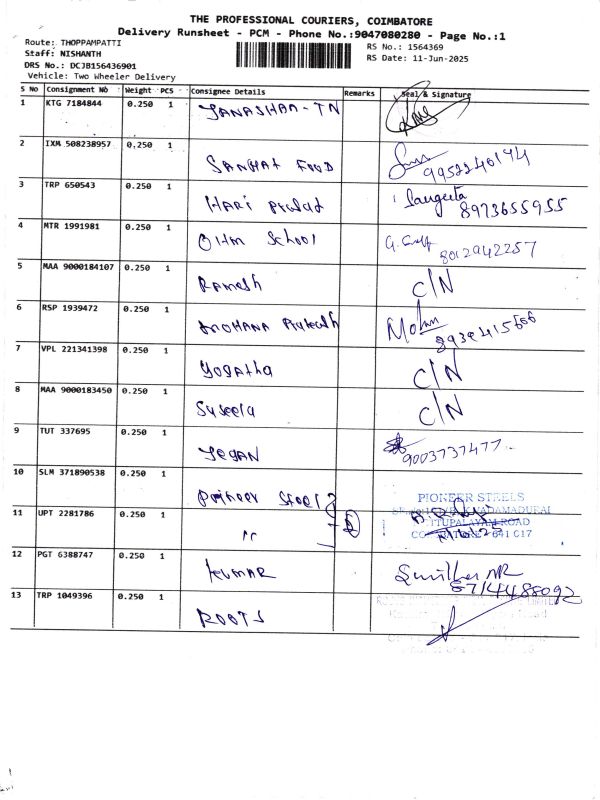 THE PROFESSIONAL COURIERS, COIMBATORE
Delivery Runsheet - PCM - Phone No.:9047080280 - Page No.:1
Route: THOPPAMPATTI
RS No.: 1564369
Staff: NISHANTH
RS Date: 11-Jun-2025
DRS No.: DCJB156436901
Vehicle: Two Wheeler Delivery
S No Consignment No Weight PCS Consignee Details Remarks Seal & Signature
1 KTG 7184844 0.250 1 JANASHAA-TN
2 IXM 508238957 0.250 1 SANGHAT FOOD 9952240194
3 TRP 650543 0.250 1 HARI Prasad Sangeeta 8973655955
4 MTR 1991981 0.250 1 OHM School 8012942257
5 MAA 9000184107 0.250 1 Ramesh C/N
6 RSP 1939472 0.250 1 MOHANA Prakash Mohan
7 VPL 221341398 0.250 1 Yogatha C/N
8 MAA 9000183450 0.250 1 Suseela C/N
9 TUT 337695 0.250 1 JEGAN 9003737477
10 SLM 371890538 0.250 1 Poineer Steels PIONEER STEELS
11 UPT 2281786 0.250 1 11
12 PGT 6388747 0.250 1 KUMAR 8714488092
13 TRP 1049396 0.250 1 ROOTS